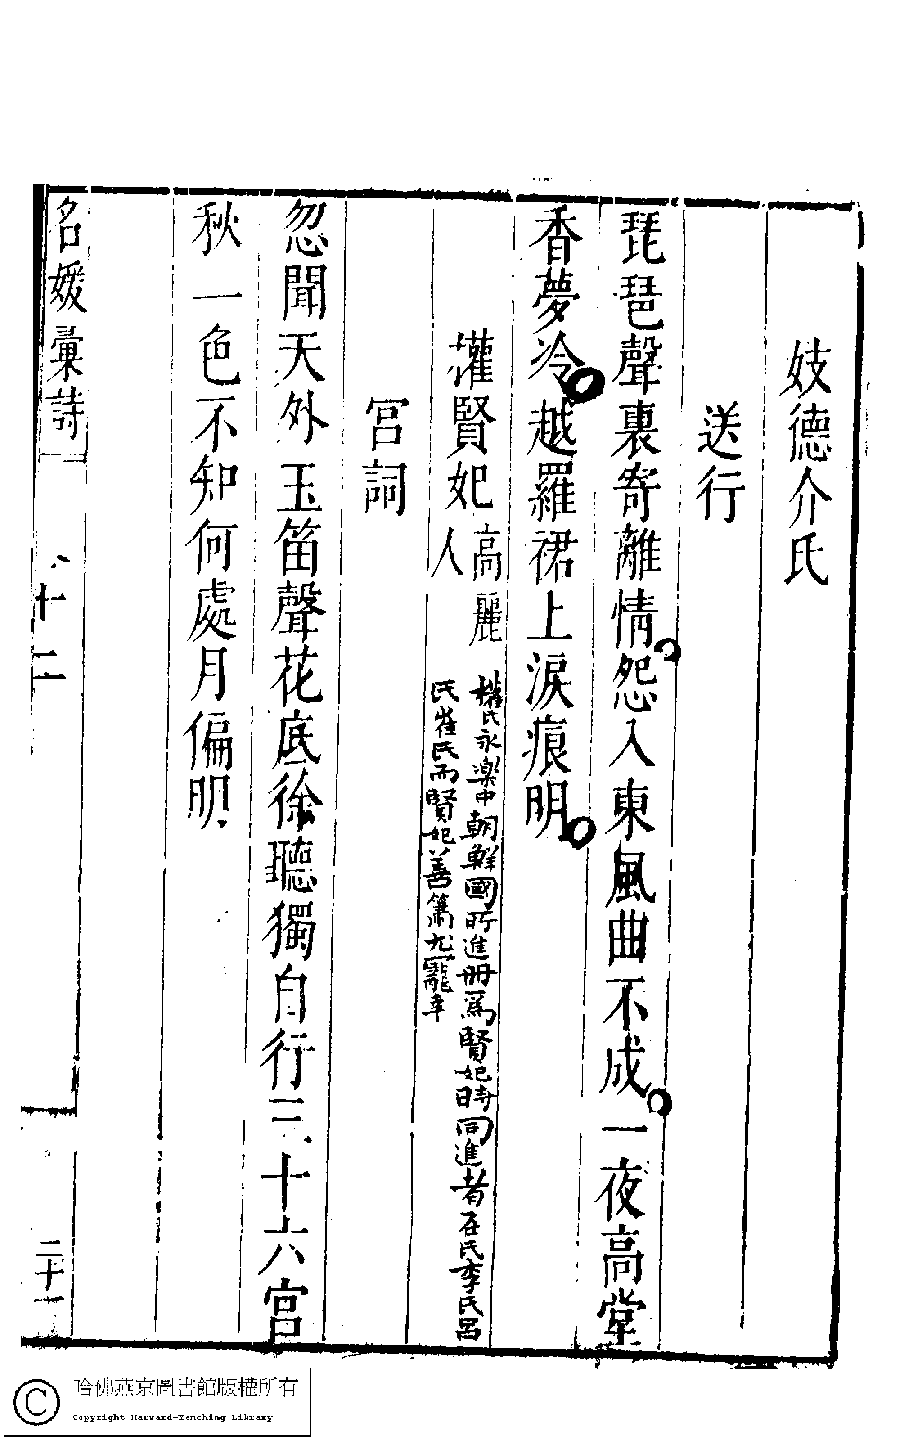 妓德介氏
送行
琵琶聲裏寄離情怨入東風曲不成一夜高堂
香夢冷越羅裙上淚痕明
權賢妃高麗人
權氏永樂中朝鮮國所進冊爲賢妃時同進者石氏李氏呂
氏崔氏而賢妃善簫尤寵幸
宮詞
忽聞天外玉笛聲花底徐聽獨自行三十六宮
秋一色不知何處月偏明
名媛彙詩
十二
二十一
哈佛燕京圖書館版權所有
Copyright Harvard-Yenching Library